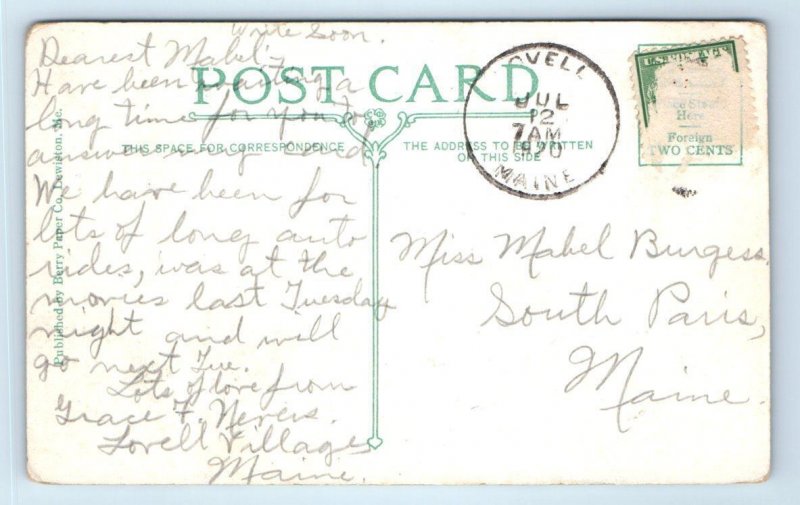 Write Soon.
Dearest Mabel:
Have been waiting a
long time for you to
answer my card
We have been for
lots of long auto
rides, was at the
movies last Tuesday
night and will
go next Tue.
Lots of love from
Grace F. Nevers.
Lovell Village
Maine.
POST CARD
THIS SPACE FOR CORRESPONDENCE
THE ADDRESS TO BE WRITTEN
ON THIS SIDE
Published by Berry Paper Co., Lewiston, Me.
OVELL
JUL
12
7AM
MAINE
Here
Foreign
TWO CENTS
Miss Mabel Burgess,
South Paris,
Maine.